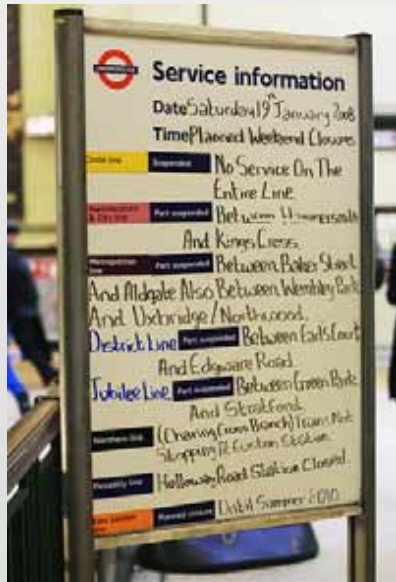 UNDERGROUND
Service information
Date Saturday 19th January 2008
Time Planned Weekend Closures
Circle line Suspended No Service On The
Entire Line
Hammersmith & City line Part suspended Between Hammersmith
And Kings Cross.
Metropolitan line Part suspended Between Baker Street
And Aldgate Also Between Wembley Park
And Uxbridge/Northwood.
District Line Part suspended Between Earl's Court
And Edgware Road.
Jubilee Line Part suspended Between Green Park
And Stratford.
Northern line (Charing Cross Branch) Trains Not
Stopping At Euston Station.
Piccadilly line Holloway Road Station Closed.
East London line Planned closure Until Summer 2010